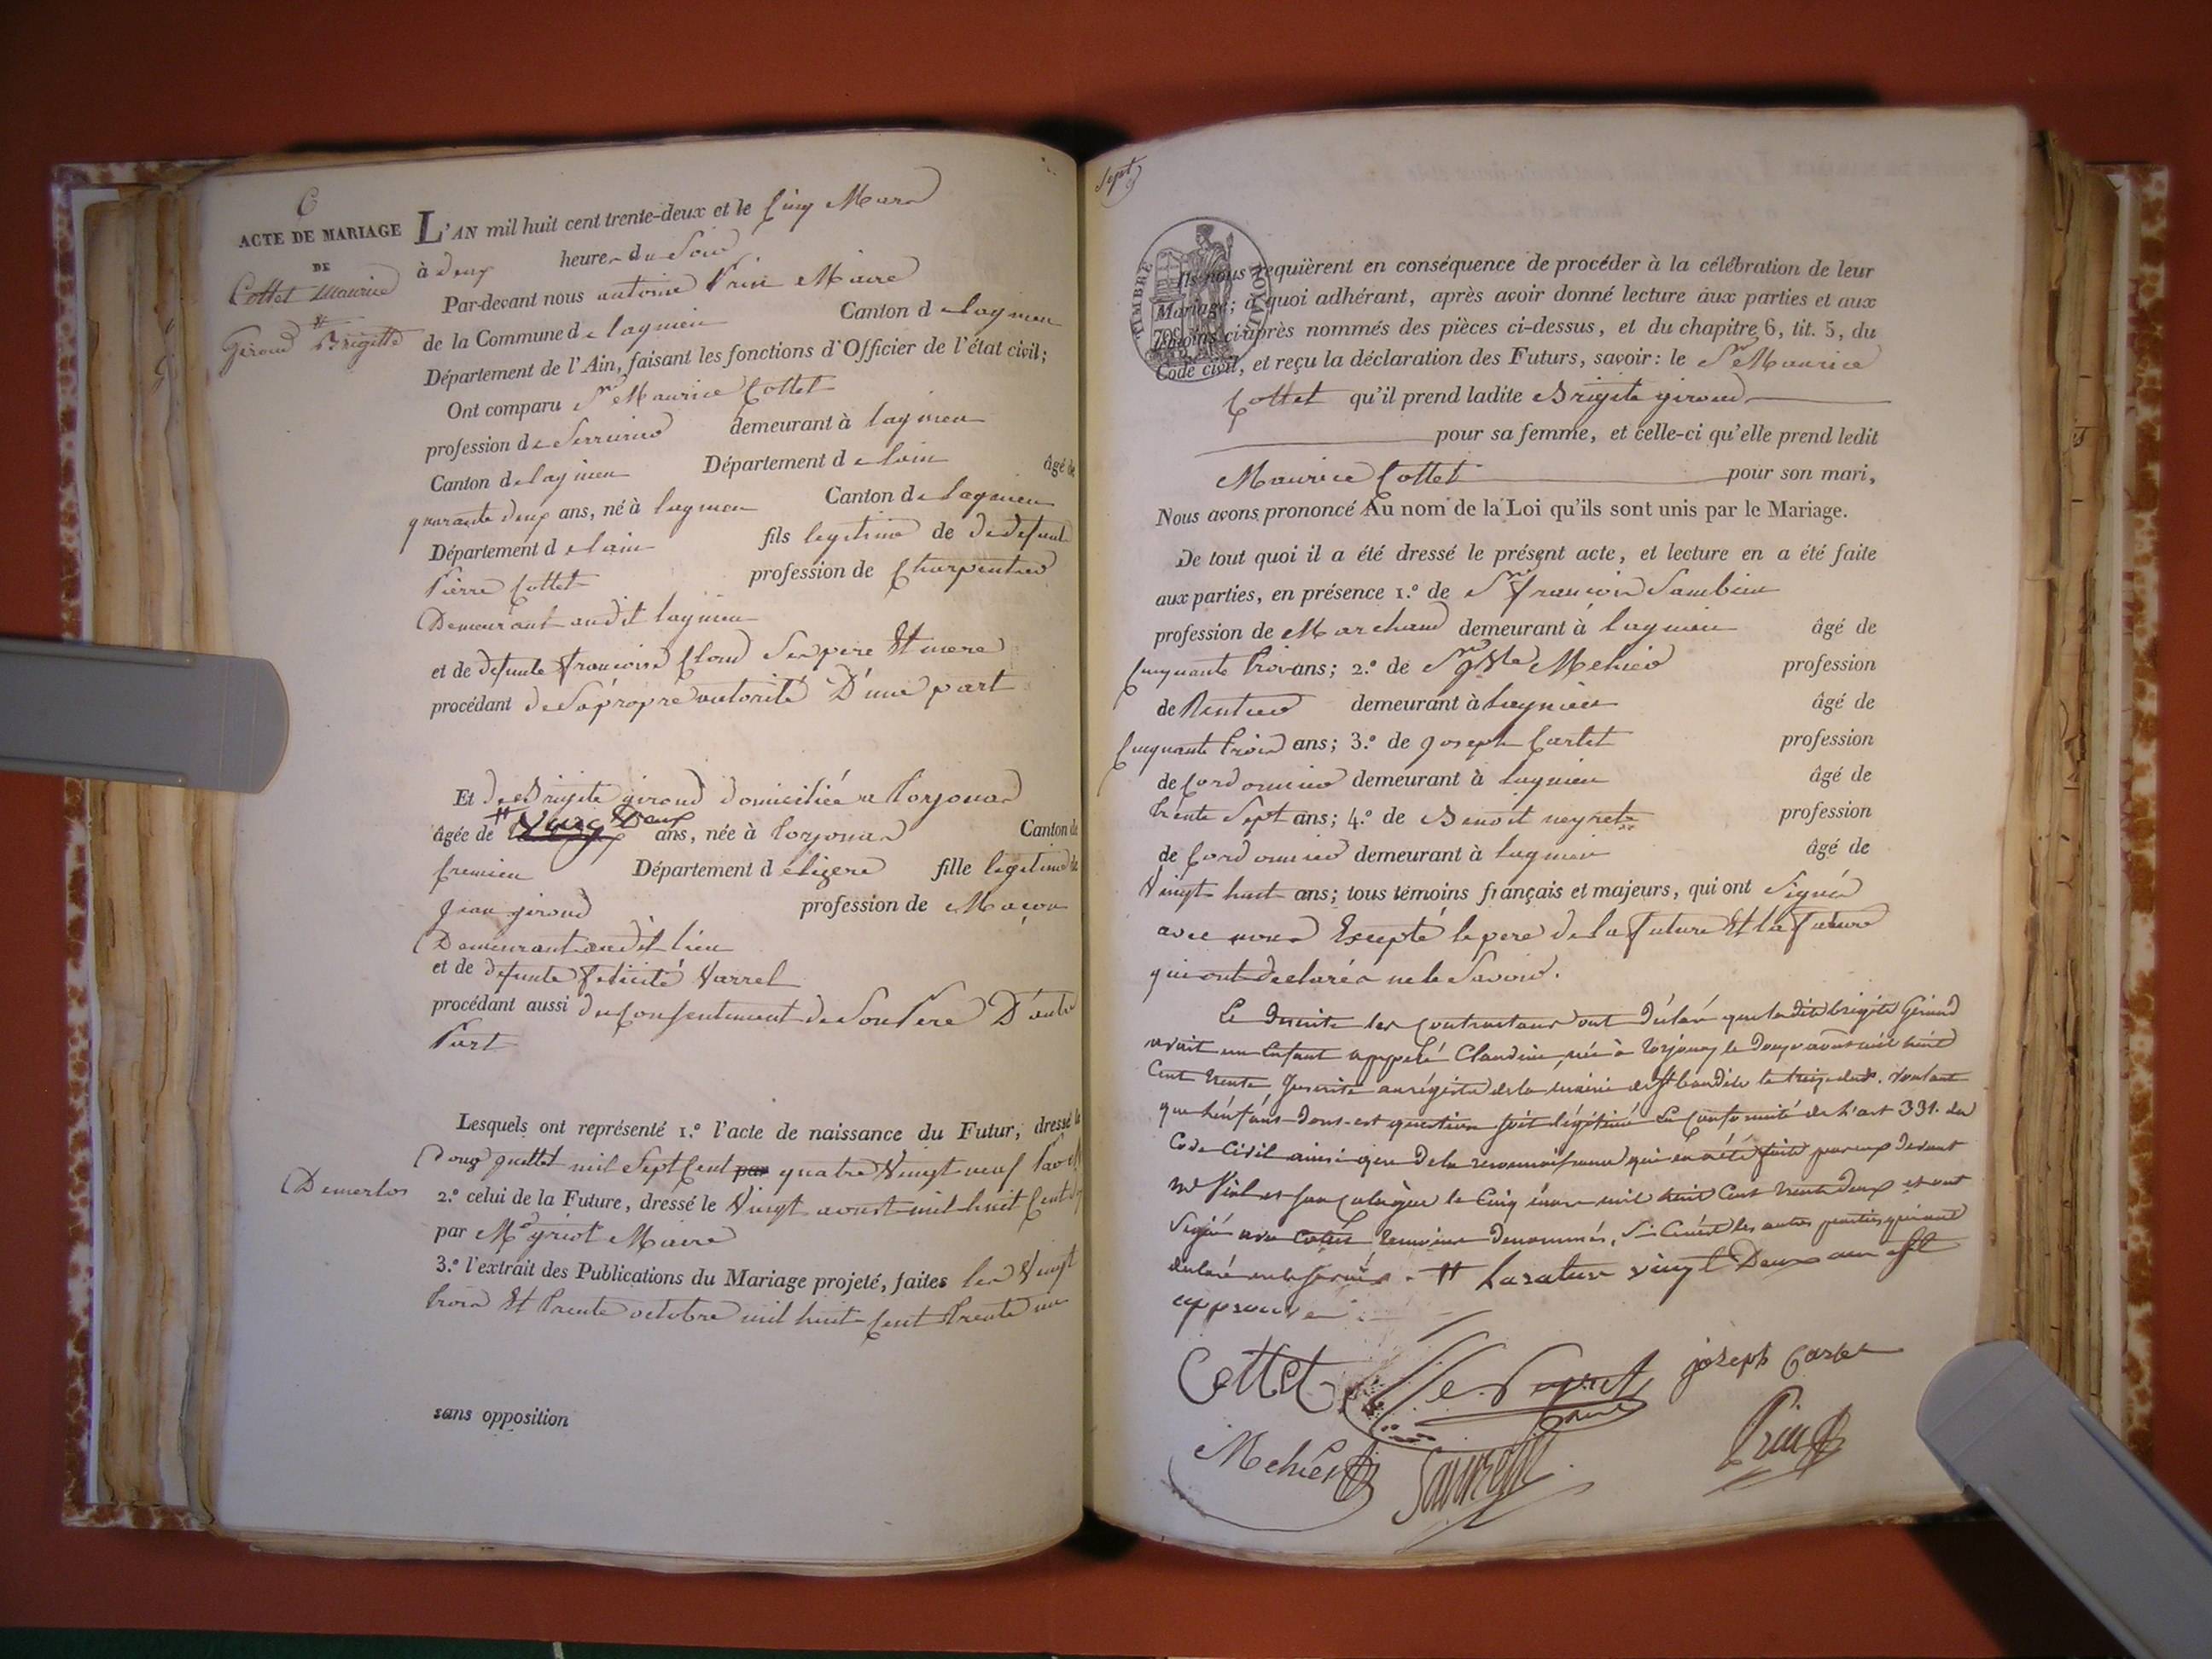 C
ACTE DE MARIAGE
DE
Cottet Maurice
&
Giroud Brigitte
L'AN mil huit cent trente-deux et le Cinq Mars
à deux heures du Soir
Par-devant nous antoine Prin Maire
de la Commune de lagnieu Canton de lagnieu
Département de l'Ain, faisant les fonctions d'Officier de l'état civil;
Ont comparu Sr Maurice Cottet
profession de Serrurier demeurant à lagnieu
Canton de lagnieu Département de lain âgé de
quarante deux ans, né à lagnieu Canton de lagnieu
Département de lain fils legitime de de defunt
Pierre Cottet profession de Charpentier
Demeurant audit lagnieu
et de defunte francoise Ses pere Et mere
procédant de Sa propre autorité D'une part
Et de Brigite giroud domiciliée a
âgée de Vingt Deux ans, née à Canton de
Cremieu Département de lizere fille legitime de
Jean giroud profession de Maçon
Demeurant audit lieu
et de defunte felicité Varrel
procédant aussi du Consentement de Son Pere D'autre
Part
Lesquels ont représenté 1.º l'acte de naissance du Futur, dressé le
Douze juillet mil Sept Cent par quatre Vingt neuf
Demerlos
2.º celui de la Future, dressé le Vingt aoust mil huit Cent
par Mr griot Maire
3.º l'extrait des Publications du Mariage projeté, faites les Vingt
trois Et trente octobre mil huit Cent trente un
sans opposition
Sept
TIMBRE ROYAL
Ils nous requièrent en conséquence de procéder à la célébration de leur
Mariage; à quoi adhérant, après avoir donné lecture aux parties et aux
Témoins ci-après nommés des pièces ci-dessus, et du chapitre 6, tit. 5, du
Code civil, et reçu la déclaration des Futurs, savoir: le Sr Maurice
Cottet qu'il prend ladite Brigite giroud
pour sa femme, et celle-ci qu'elle prend ledit
Maurice Cottet pour son mari,
Nous avons prononcé Au nom de la Loi qu'ils sont unis par le Mariage.
De tout quoi il a été dressé le présent acte, et lecture en a été faite
aux parties, en présence 1.º de Sr francois
profession de Marchand demeurant à lagnieu âgé de
Cinquante trois ans; 2.º de Sr Mehier profession
de Rentier demeurant à lagnieu âgé de
Cinquante trois ans; 3.º de joseph Carlet profession
de Cordonnier demeurant à lagnieu âgé de
trente Sept ans; 4.º de Benoit neyret profession
de Cordonnier demeurant à lagnieu âgé de
Vingt huit ans; tous témoins français et majeurs, qui ont Signés
avec nous Excepté le pere de la future Et la future
qui ont declarés ne le Savoir.
De Suite les Contractans ont déclaré que ladite brigite Giroud
avait un Enfant appelé Claudine, née à le Douze aoust mil huit
Cent trente, Inscrite au régistre de la mairie de St baudile le treize dud. voulant
que l'enfant dont est question soit légitimé En Conformité de l'art 331. du
Code Civil ainsi que de la reconnaissance qui en a été faite par eux devant
Me Vial et son Colègue le Cinq mars mil huit Cent trente deux et ont
Signé avec Cottet temoins denommés, les autres parties qui ont
declaré ne le savoir. # La rature vingt Deux ans est
approuvée.
Cottet
joseph Carlet
Mehier
Prin